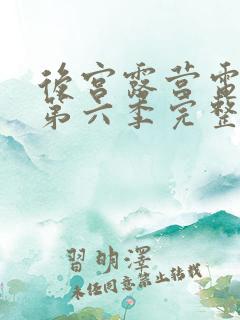 後宮露营電
第六季完整
習明澤
未经同意禁止转载